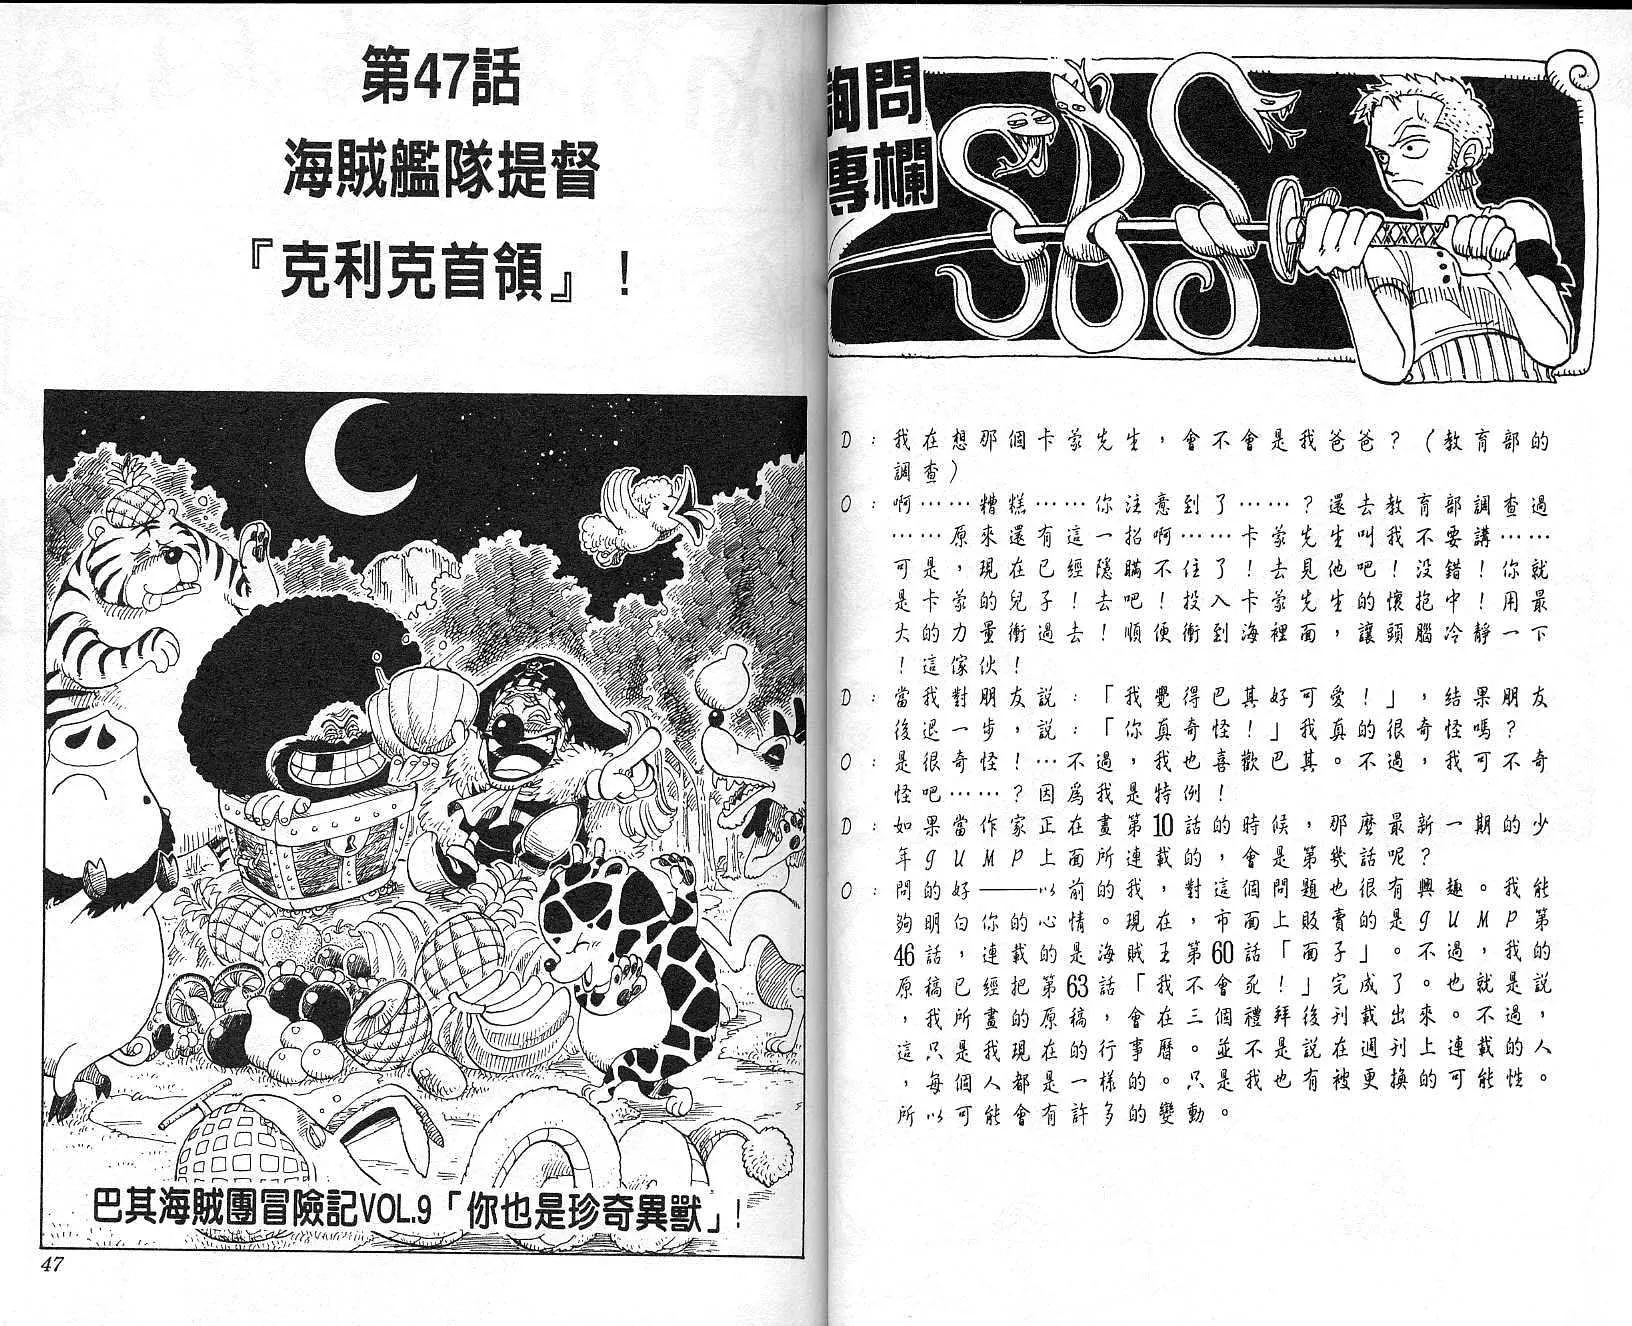 詢問
專欄
D：我在想那個卡蒙先生，會不會是我爸爸？（教育部的
調查）
O：啊……糟糕……你注意到了……？還去教育部調查過
……原來還有這一招啊……卡蒙先生叫我不要講……
可是，現在已經隱瞞不住了！去見他吧！沒錯！你就
是卡蒙的兒子！去吧！投入卡蒙先生的懷抱中！用最
大的力量衝過去！順便衝到海裡面，讓頭腦冷靜一下
！這傢伙！
D：當我對朋友說：「我覺得巴其好可愛！」，結果朋友
後退一步，說：「你真奇怪！」我真的很奇怪嗎？
O：是很奇怪！…不過，我也喜歡巴其。不過，我可不奇
怪吧……？因為我是特例！
D：如果當作家正在畫第10話的時候，那麼最新一期的少
年JUMP上面所連載的，會是第幾話呢？
O：問的好——以前的我，對這個問題也很有興趣。我能
夠明白你的心情。現在，市面上販賣的是JUMP第
46話，連載的是海賊王第60話「面子」。不過，我的
原稿已經把第63話「我不會死！」完成了。也就是說
，我所畫的原稿，會在三個禮拜後刊載出來。不過，
這只是我現在的行事曆。並不是說在週刊上連載的人
，每個人都是一樣的。只是我也有被更換的可能性。
所以可能會有許多的變動。
第47話
海賊艦隊提督
『克利克首領』！
巴其海賊團冒險記VOL.9「你也是珍奇異獸」！
47